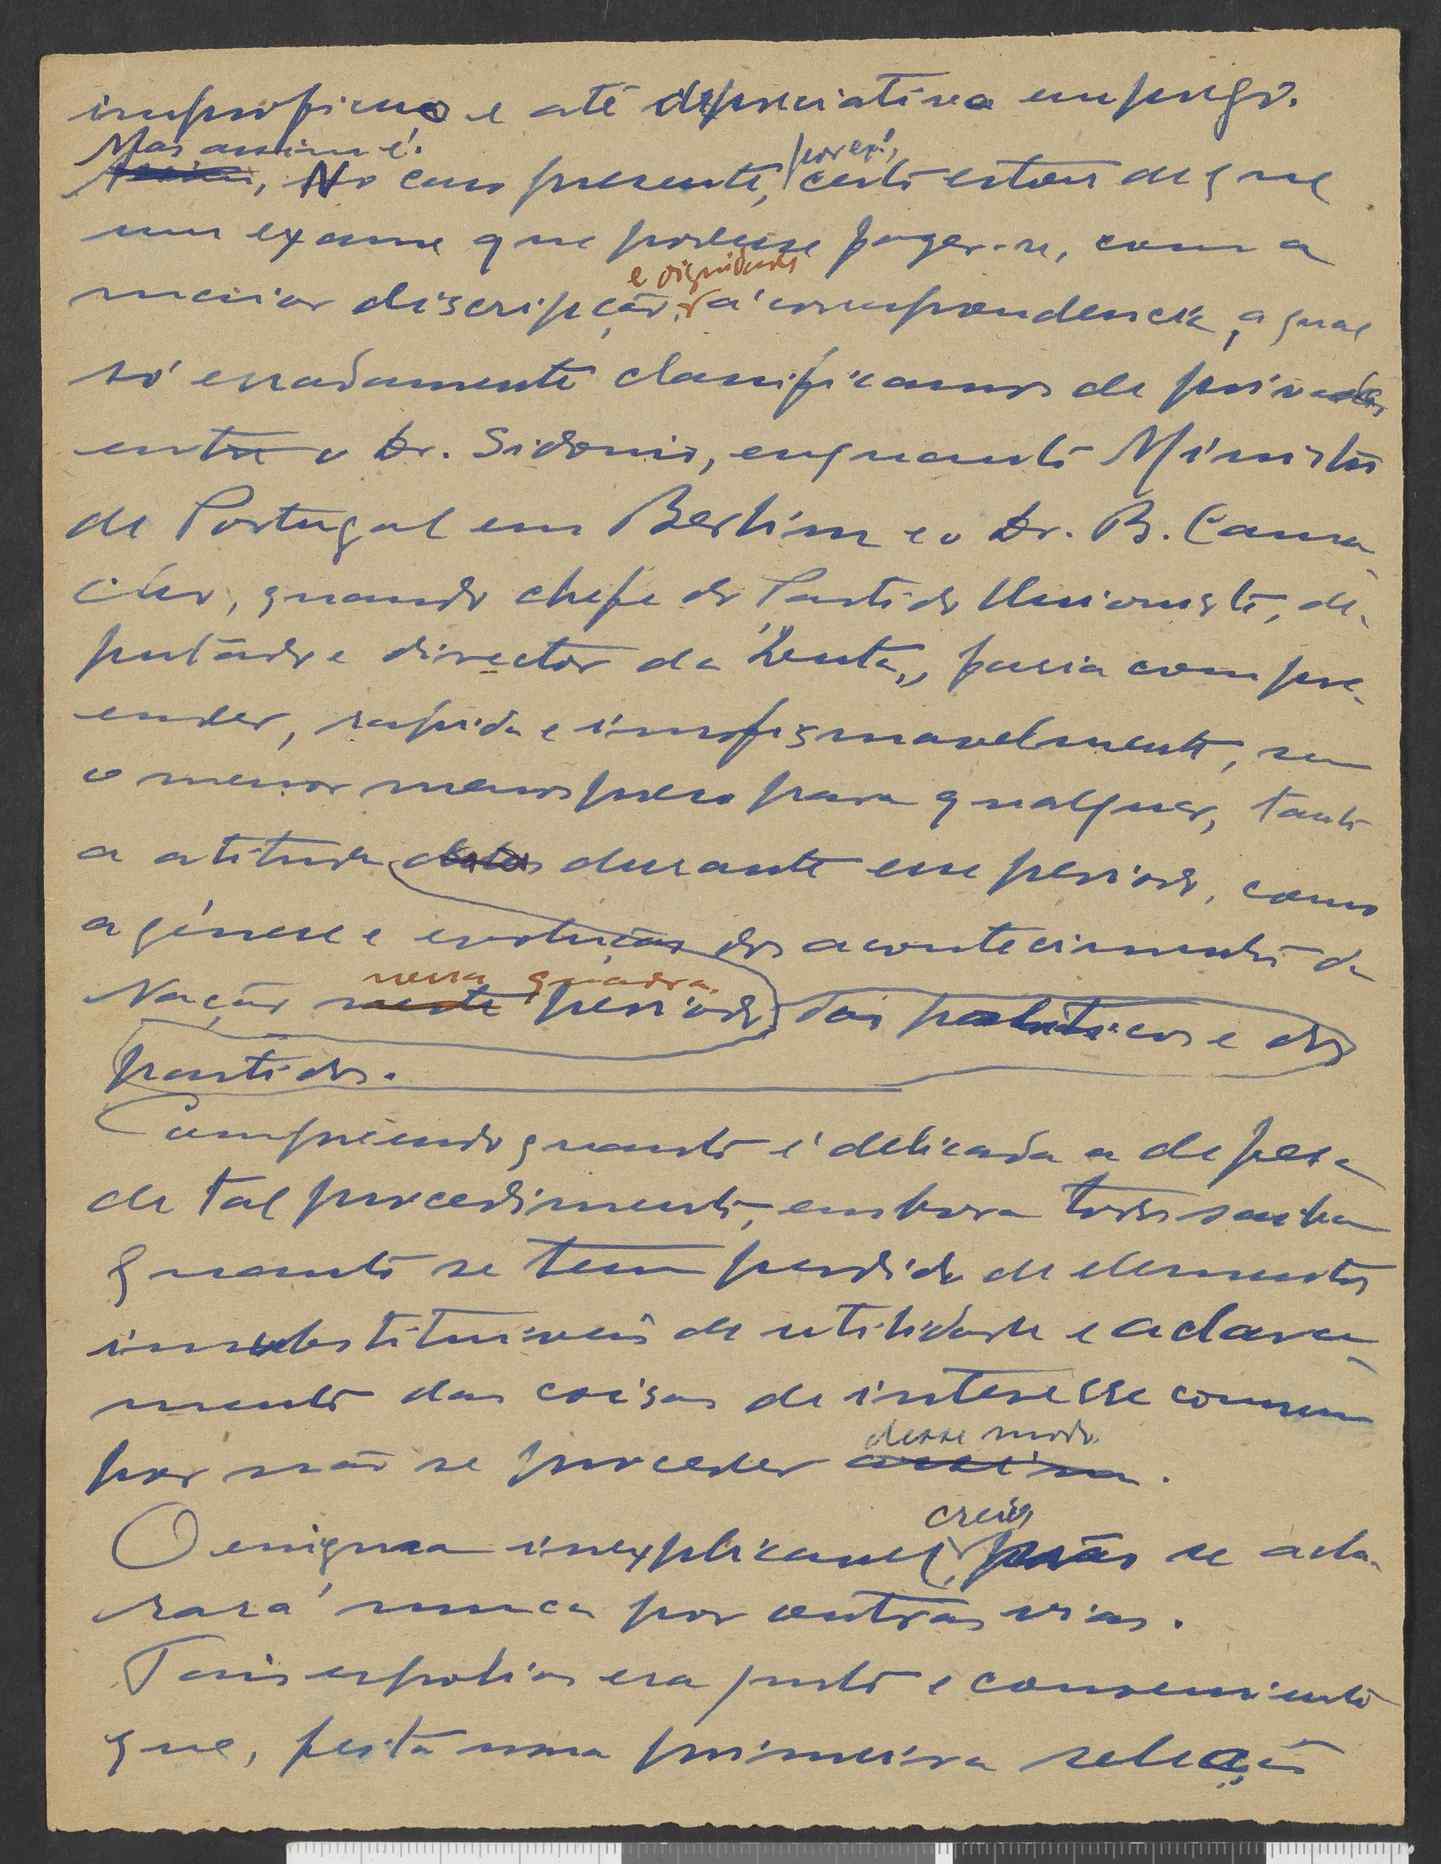 improficuo e até depreciativo emprego.
Mas assim é.
Assim, No caso presente, porem, certo estou de que
um exame que pudesse fazer-se, com a
e dignidade
maior discripção, á correspondencia, a qual
só erradamente classificamos de privada,
entre o Dr. Sidonio, enquanto Ministro
de Portugal em Berlim e o Dr. B. Cama-
cho, quando chefe do Partido Unionista, de-
putado e director da "Lucta", faria compre-
ender, rapida e insofismavelmente, sem
o menor menospreso para qualquer, tanto
a atitude destes durante esse periodo, como
a génese e evolução dos acontecimentos da
nessa quadra.
Nação neste periodo, dos politicos e dos
partidos.
Compreendo quanto é delicada a defesa
de tal procedimento, embora todos saibam
quanto se tem perdido de elementos
insubstituiveis de utilidade e aclara-
mento das coisas de interesse comum
desse modo
por não se proceder assim.
creio
O enigma inexplicavel, não se acla-
rará nunca por outras vias.
Tais espolios era justo e conveniente
que, feita uma primeira seleção